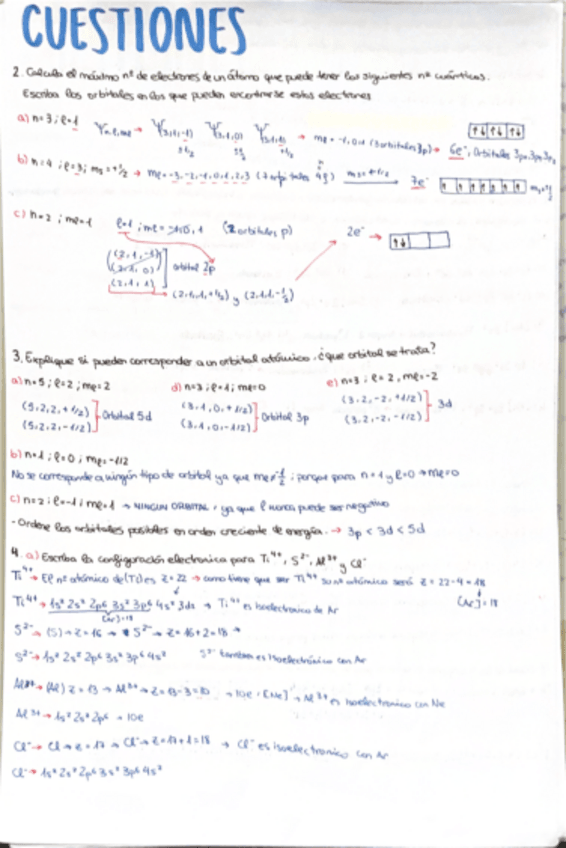 CUESTIONES
2. Calcula el máximo nº de electrones de un átomo que puede tener los siguientes nº cuánticos.
Escriba los orbitales en los que pueden encontrarse estos electrones
a) n=3; l=1 Ψn,l,ml → Ψ(3,1,-1) Ψ(3,1,0) Ψ(3,1,1) → ml = -1,0,1 (3 orbitales 3p) → 6e⁻, Orbitales 3px, 3py, 3pz
±1/2 ±1/2 ±1/2
b) n=4; l=3; ms=+1/2 → ml = -3,-2,-1,0,1,2,3 (7 orbitales 4f) ms=+1/2 → 7e⁻
c) n=2; ml=1 l=1; ml = -1,0,1 (orbitales p) 2e⁻ →
(2,1,-1)
(2,1,0) orbital 2p
(2,1,1)
→ (2,1,1,+1/2) y (2,1,1,-1/2)
3. Explique si pueden corresponder a un orbital atómico. ¿que orbital se trata?
a) n=5; l=2; ml=2 d) n=3; l=1; ml=0 e) n=3; l=2, ml=-2
(5,2,2,+1/2) (3,1,0,+1/2) (3,2,-2,+1/2)
Orbital 5d Orbital 3p 3d
(5,2,2,-1/2) (3,1,0,-1/2) (3,2,-2,-1/2)
b) n=1; l=0; ml=-1/2
No se corresponde a ningún tipo de orbital ya que ml≠-1/2; porque para n=1 y l=0 → ml=0
c) n=2; l=-1; ml=1 → NINGUN ORBITAL, ya que l nunca puede ser negativo
- Ordene los orbitales posibles en orden creciente de energía. → 3p < 3d < 5d
4. a) Escriba la configuración electronica para Ti⁴⁺, S²⁻, Al³⁺ y Cl⁻
Ti⁴⁺ → El nº atómico de (Ti) es Z=22 → como tiene que ser Ti⁴⁺ su nº atómico será Z = 22-4 = 18
[Ar] = 18
Ti⁴⁺ → 1s² 2s² 2p⁶ 3s² 3p⁶ 4s² 3d² → Ti⁴⁺ es isoelectronico de Ar
[Ar]=18
S²⁻ → (S) → Z=16 → S²⁻ → Z=16+2=18 →
S²⁻ → 1s² 2s² 2p⁶ 3s² 3p⁶ 4s² S²⁻ tambien es isoelectrónico con Ar
Al³⁺ → (Al) Z=13 → Al³⁺ → Z=13-3=10 → 10e⁻ [Ne] → Al³⁺ es isoelectronico con Ne
Al³⁺ → 1s² 2s² 2p⁶ → 10e
Cl⁻ → Cl → Z=17 → Cl⁻ → Z=17+1=18 → Cl⁻ es isoelectronico con Ar
Cl⁻ → 1s² 2s² 2p⁶ 3s² 3p⁶ 4s²